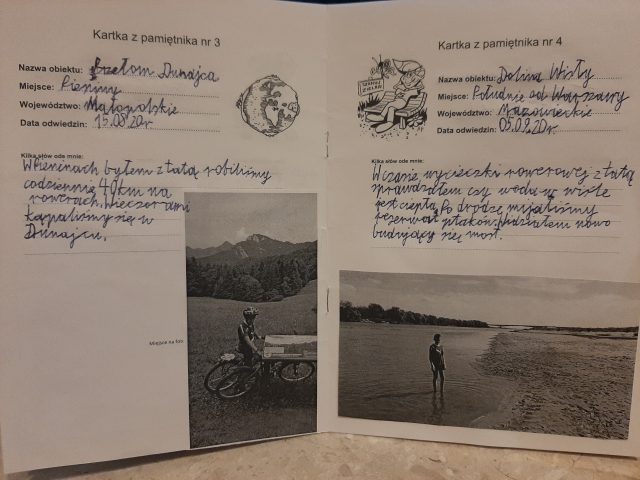 Kartka z pamiętnika nr 3
Nazwa obiektu: Przełom Dunajca
Miejsce: Pieniny
Województwo: Małopolskie
Data odwiedzin: 15.08.20r.
Kilka słów ode mnie:
W Pieninach byłem z tatą robiliśmy
codziennie 40km na
rowerach. Wieczorami
kąpaliśmy się w
Dunajcu.
Miejsce na foto
Kartka z pamiętnika nr 4
Nazwa obiektu: Dolina Wisły
Miejsce: Południe od Warszawy
Województwo: Mazowieckie
Data odwiedzin: 05.09.20r.
Kilka słów ode mnie:
W czasie wycieczki rowerowej z tatą
sprawdzałem czy woda w wiśle
jest ciepła. Po drodze mijaliśmy
rezerwat ptaków. Widziałem nowo
budujący się most.